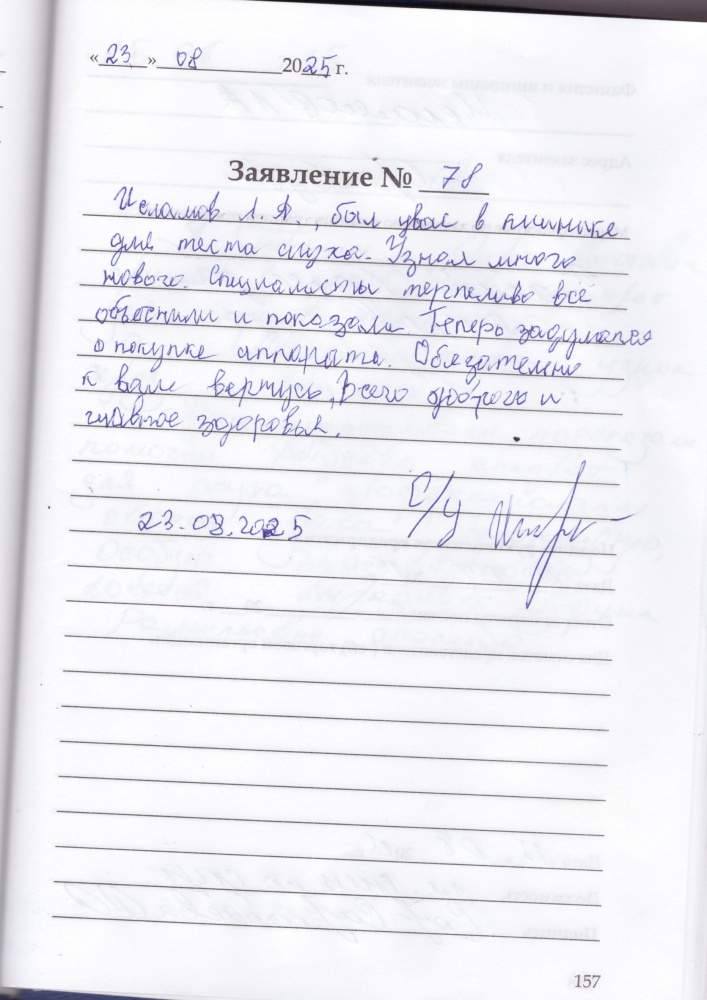 «23» 08 2025 г.
Заявление № 78
Исламов Л. А., был у вас в клинике
для теста слуха. Узнал много
нового. Специалисты терпеливо всё
объяснили и показали Теперь задумался
о покупке аппарата. Обязательно
к вам вернусь, Всего доброго и
главное здоровья.
С/у
23.08.2025
157